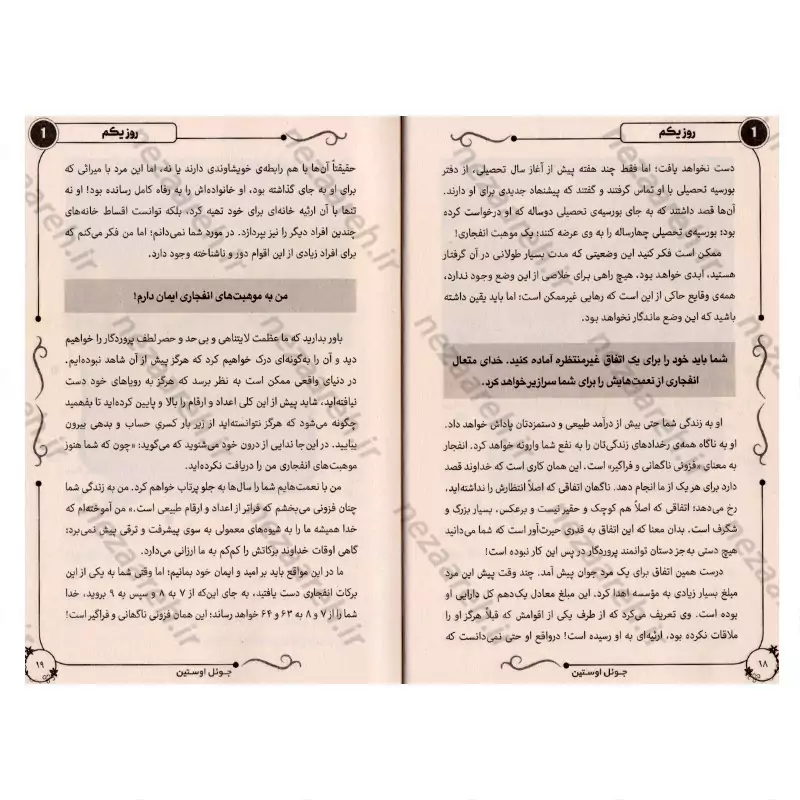 روز یکم
1
دست نخواهد یافت؛ اما فقط چند هفته پیش از آغاز سال تحصیلی، از دفتر
بورسیه تحصیلی با او تماس گرفتند و گفتند که پیشنهاد جدیدی برای او دارند.
آن‌ها قصد داشتند که به جای بورسیه‌ی تحصیلی دوساله که او درخواست کرده
بود؛ بورسیه‌ی تحصیلی چهارساله را به وی عرضه کنند؛ یک موهبت انفجاری!
ممکن است فکر کنید این وضعیتی که مدت بسیار طولانی در آن گرفتار
هستید، ابدی خواهد بود، هیچ راهی برای خلاصی از این وضع وجود ندارد،
همه‌ی وقایع حاکی از این است که رهایی غیرممکن است؛ اما باید یقین داشته
باشید که این وضع ماندگار نخواهد بود.
شما باید خود را برای یک اتفاق غیرمنتظره آماده کنید. خدای متعال
انفجاری از نعمت‌هایش را برای شما سرازیر خواهد کرد.
او به زندگی شما حتی بیش از درآمد طبیعی و دستمزدتان پاداش خواهد داد.
او به ناگاه همه‌ی رخدادهای زندگی‌تان را به نفع شما وارونه خواهد کرد. انفجار
به معنای «فزونی ناگهانی و فراگیر» است. این همان کاری است که خداوند قصد
دارد برای هر یک از ما انجام دهد. ناگهان اتفاقی که اصلاً انتظارش را نداشته‌اید،
رخ می‌دهد؛ اتفاقی که اصلاً هم کوچک و حقیر نیست و برعکس، بسیار بزرگ و
شگرف است. بدان معنا که این اتفاق به قدری حیرت‌آور است که شما می‌دانید
هیچ دستی به‌جز دستان توانمند پروردگار در پس این کار نبوده است!
درست همین اتفاق برای یک مرد جوان پیش آمد. چند وقت پیش این مرد
مبلغ بسیار زیادی به مؤسسه اهدا کرد. این مبلغ معادل یک‌دهم کل دارایی او
بوده است. وی تعریف می‌کرد که از طرف یکی از اقوامش که قبلاً هرگز او را
ملاقات نکرده بود، ارثیه‌ای به او رسیده است! درواقع او حتی نمی‌دانست که
۱۸
جوئل اوستین
روز یکم
1
حقیقتاً آن‌ها با هم رابطه‌ی خویشاوندی دارند یا نه، اما این مرد با میراثی که
برای او به جای گذاشته بود، او خانواده‌اش را به رفاه کامل رسانده بود! او نه
تنها با آن ارثیه خانه‌ای برای خود تهیه کرد، بلکه توانست اقساط خانه‌های
چندین افراد دیگر را نیز بپردازد. در مورد شما نمی‌دانم؛ اما من فکر می‌کنم که
برای افراد زیادی از این اقوام دور و ناشناخته وجود دارد.
من به موهبت‌های انفجاری ایمان دارم!
باور بدارید که ما عظمت لایتناهی و بی‌حد و حصر لطف پروردگار را خواهیم
دید و آن را به‌گونه‌ای درک خواهیم کرد که هرگز پیش از آن شاهد نبوده‌ایم.
در دنیای واقعی ممکن است به نظر برسد که هرگز به رویاهای خود دست
نیافته‌اید، شاید پیش از این کلی اعداد و ارقام را بالا و پایین کرده‌اید تا بفهمید
چگونه می‌شود که هرگز نتوانسته‌اید از زیر بار کسریِ حساب و بدهی بیرون
بیایید. در این‌جا ندایی از درون خود می‌شنوید که می‌گوید: «چون که شما هنوز
موهبت‌های انفجاری من را دریافت نکرده‌اید.
من با نعمت‌هایم شما را سال‌ها به جلو پرتاب خواهم کرد. من به زندگی شما
چنان فزونی می‌بخشم که فراتر از اعداد و ارقام طبیعی است.» من آموخته‌ام که
خدا همیشه ما را به شیوه‌های معمولی به سوی پیشرفت و ترقی پیش نمی‌برد؛
گاهی اوقات خداوند برکاتش را کم‌کم به ما ارزانی می‌دارد.
ما در این مواقع باید بر امید و ایمان خود بمانیم؛ اما وقتی شما به یکی از این
برکات انفجاری دست یافتید، به جای این‌که از ۷ به ۸ و سپس به ۹ بروید، خدا
شما را از ۷ و ۸ به ۶۳ و ۶۴ خواهد رساند؛ این همان فزونی ناگهانی و فراگیر است!
۱۹
جوئل اوستین
nezaareh.ir